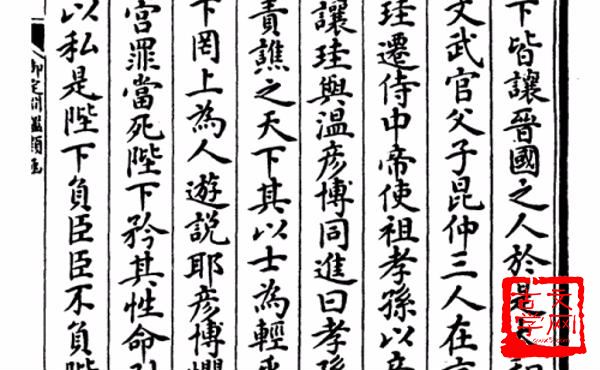 下皆讓晉國之人於是
文武官父子昆仲三人在
珪遷侍中帝使祖孝孫以
讓珪與溫彥博同進曰孝孫
責譙之天下其以士為輕乎
下罔上為人遊說耶彥博懼
宮罪當死陛下矜其性命
以私是陛下負臣臣不負陛
御定淵鑑類函
古文字网